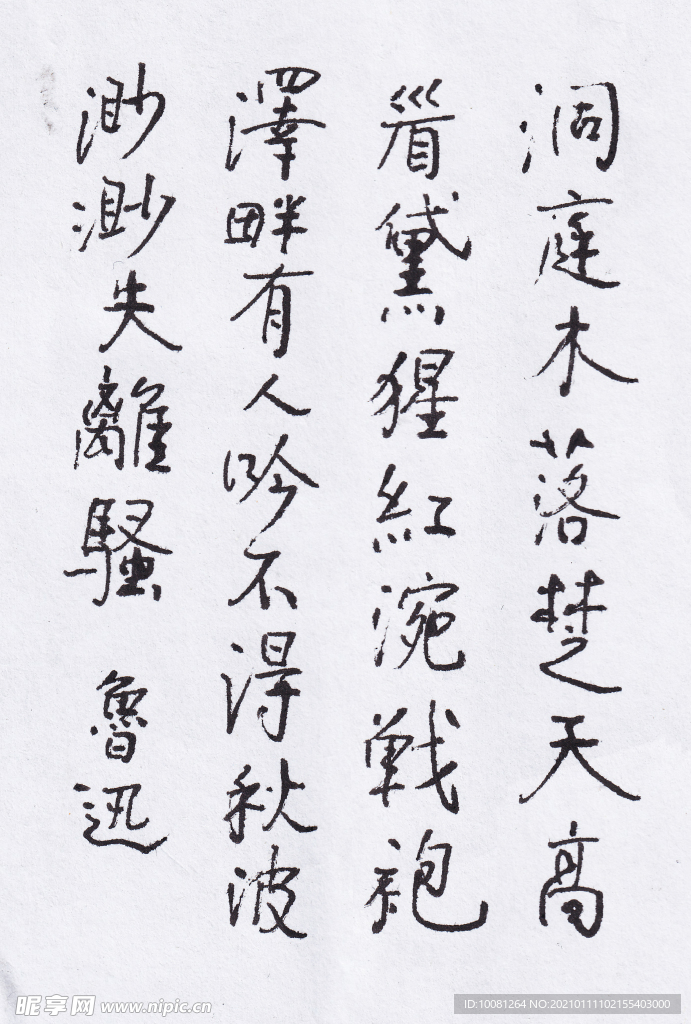 洞庭木落楚天高
眉黛猩紅涴戰袍
澤畔有人吟不得秋波
渺渺失離騷 魯迅
昵享网 www.nipic.cn
ID:10081264 NO:20210111102155403000